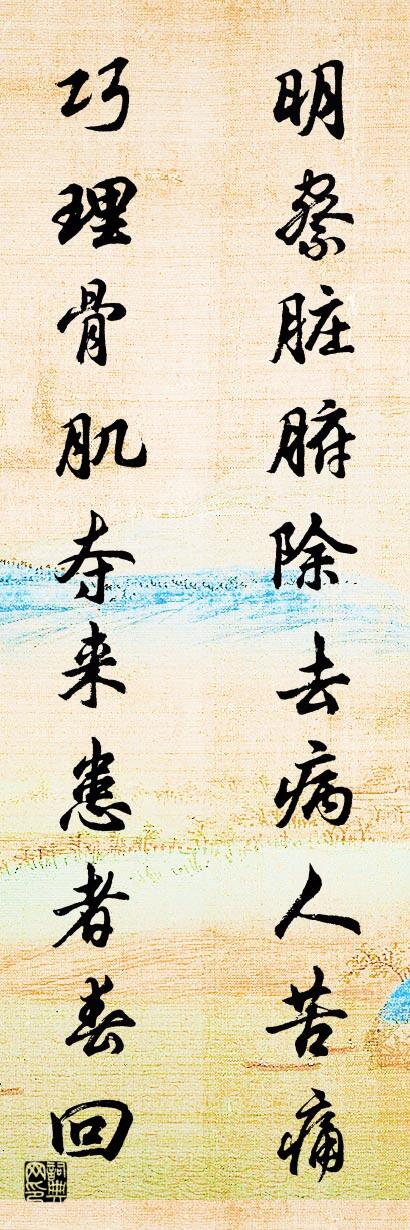 明察脏腑除去病人苦痛
巧理骨肌夺来患者春回
词典网印